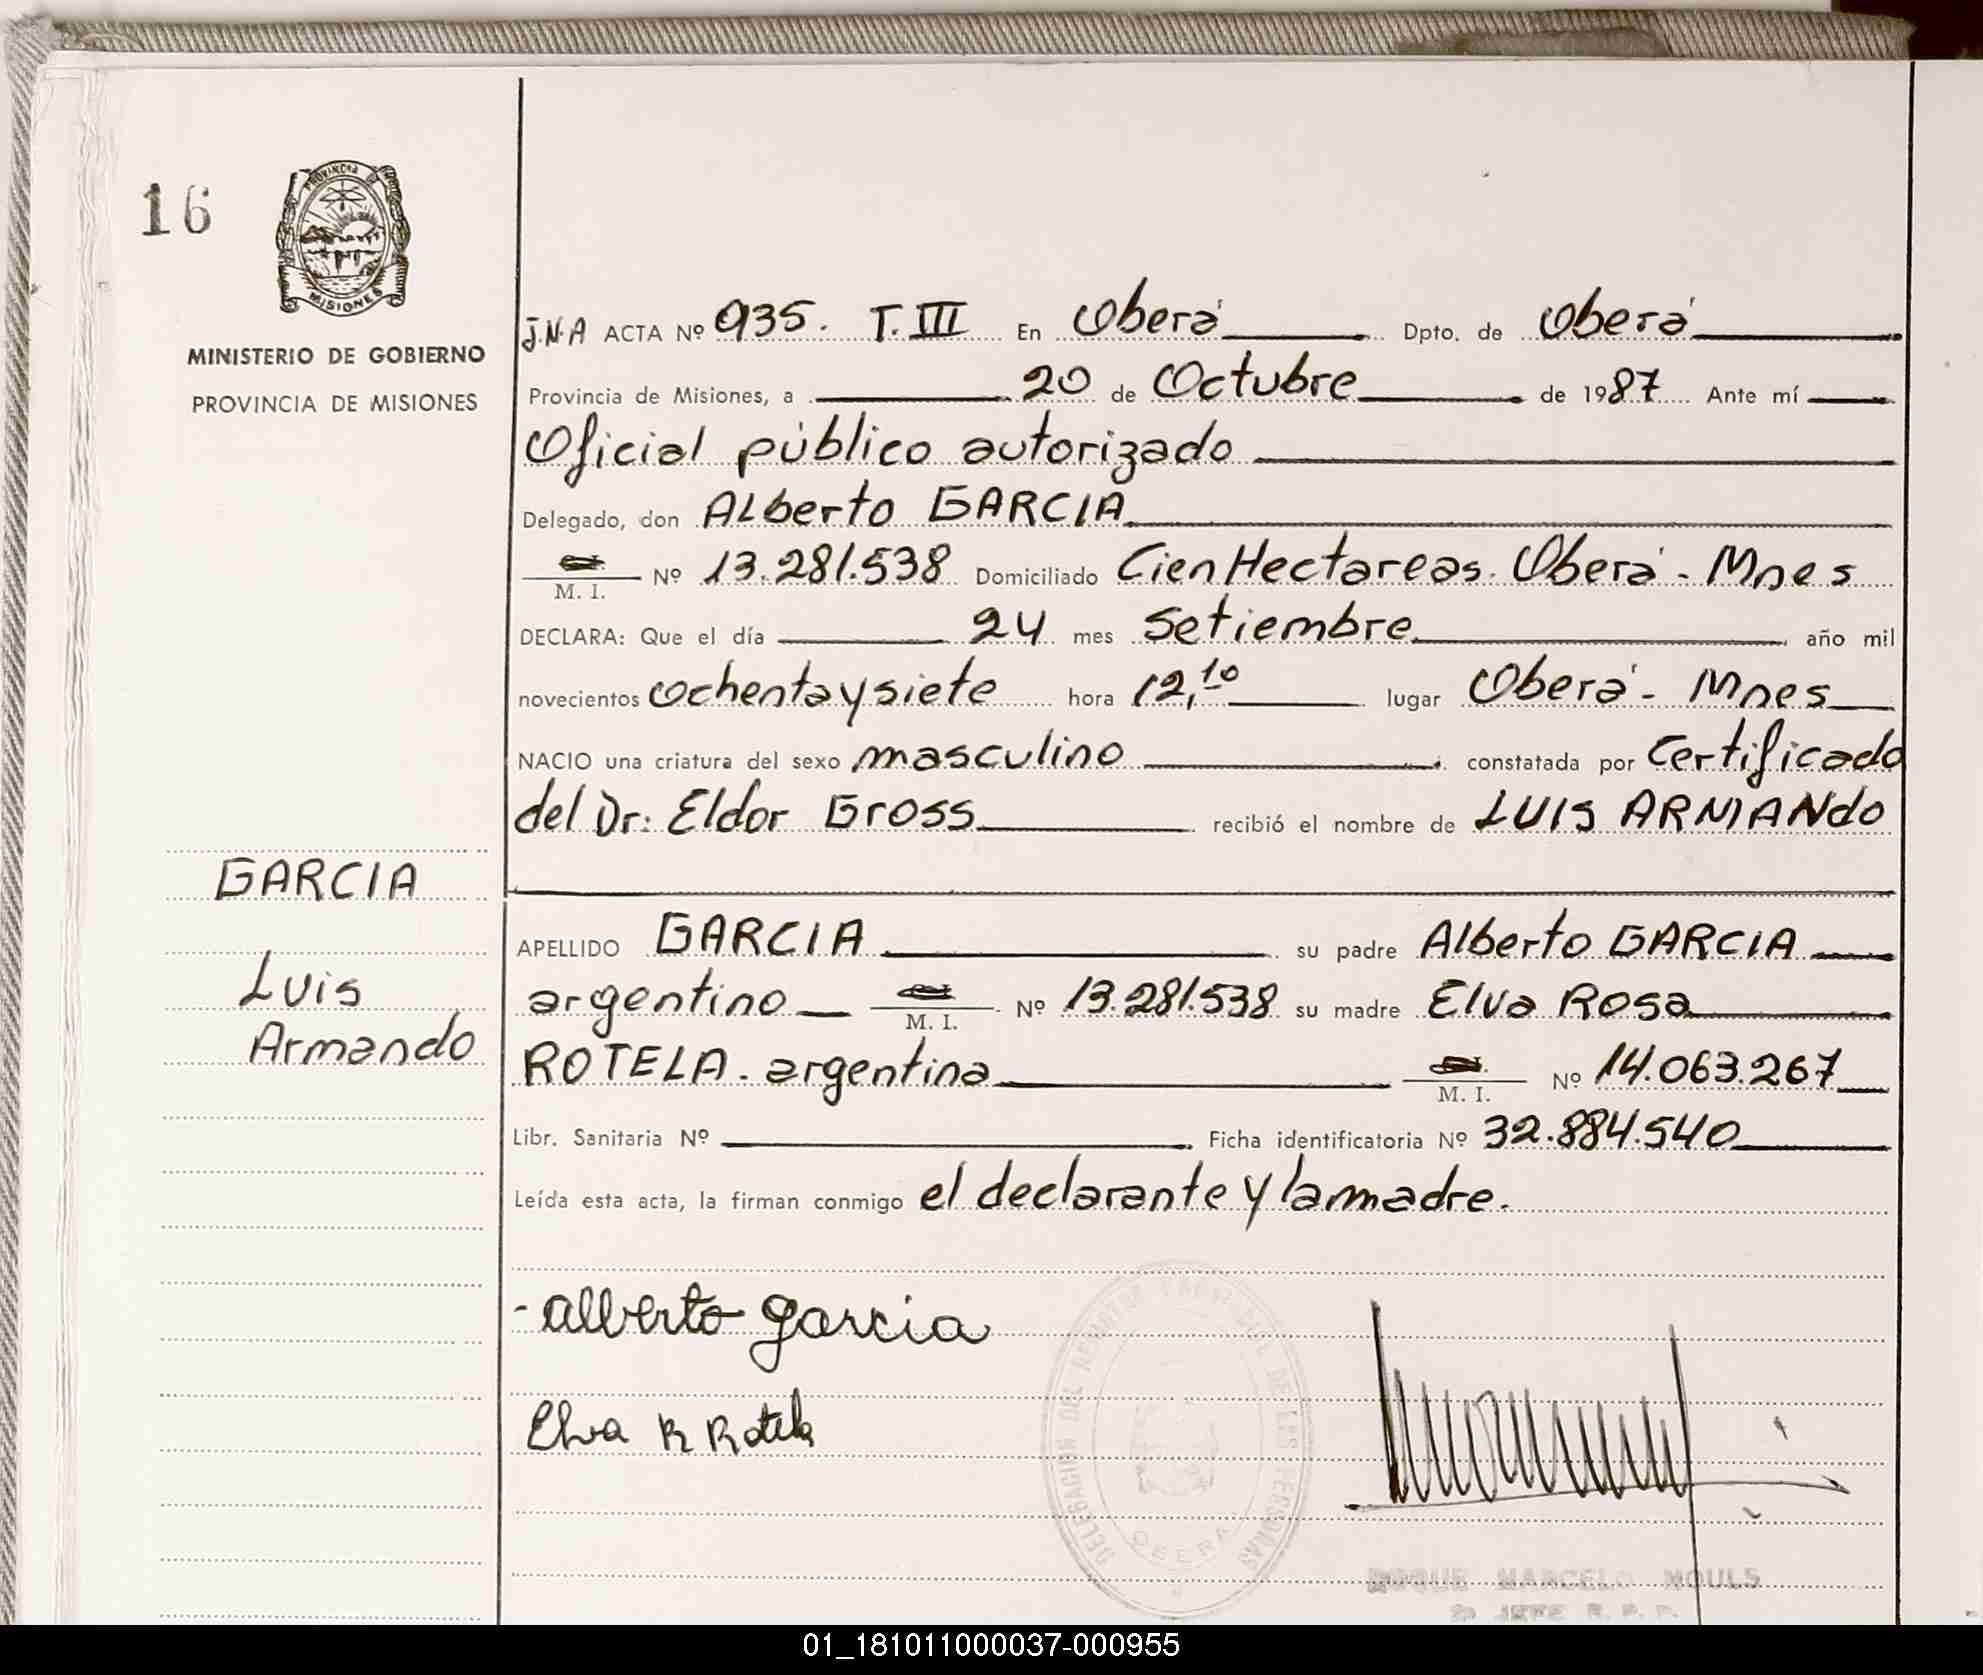 16
PROVINCIA DE
MISIONES
MINISTERIO DE GOBIERNO
PROVINCIA DE MISIONES
GARCIA
Luis
Armando
J.N.A ACTA Nº 935. T. III En Oberá Dpto. de Oberá
Provincia de Misiones, a 20 de Octubre de 1987 Ante mí
Oficial público autorizado
Delegado, don Alberto GARCIA
M. I. Nº 13.281.538 Domiciliado Cien Hectareas. Oberá - Mnes
DECLARA: Que el día 24 mes Setiembre año mil
novecientos ochenta y siete hora 12,10 lugar Oberá - Mnes
NACIO una criatura del sexo masculino constatada por Certificado
del Dr: Eldor Gross recibió el nombre de LUIS ARMANDO
APELLIDO GARCIA su padre Alberto GARCIA
argentino M. I. Nº 13.281.538 su madre Elva Rosa
ROTELA. argentina M. I. Nº 14.063.267
Libr. Sanitaria Nº Ficha identificatoria Nº 32.884.540
Leída esta acta, la firman conmigo el declarante y la madre.
- alberto garcia
Elva R Rotela
DELEGACION DEL REGISTRO PROVINCIAL DE LAS PERSONAS
OBERA
MARCELO MOULS
JEFE R. P. P.
01_181011000037-000955